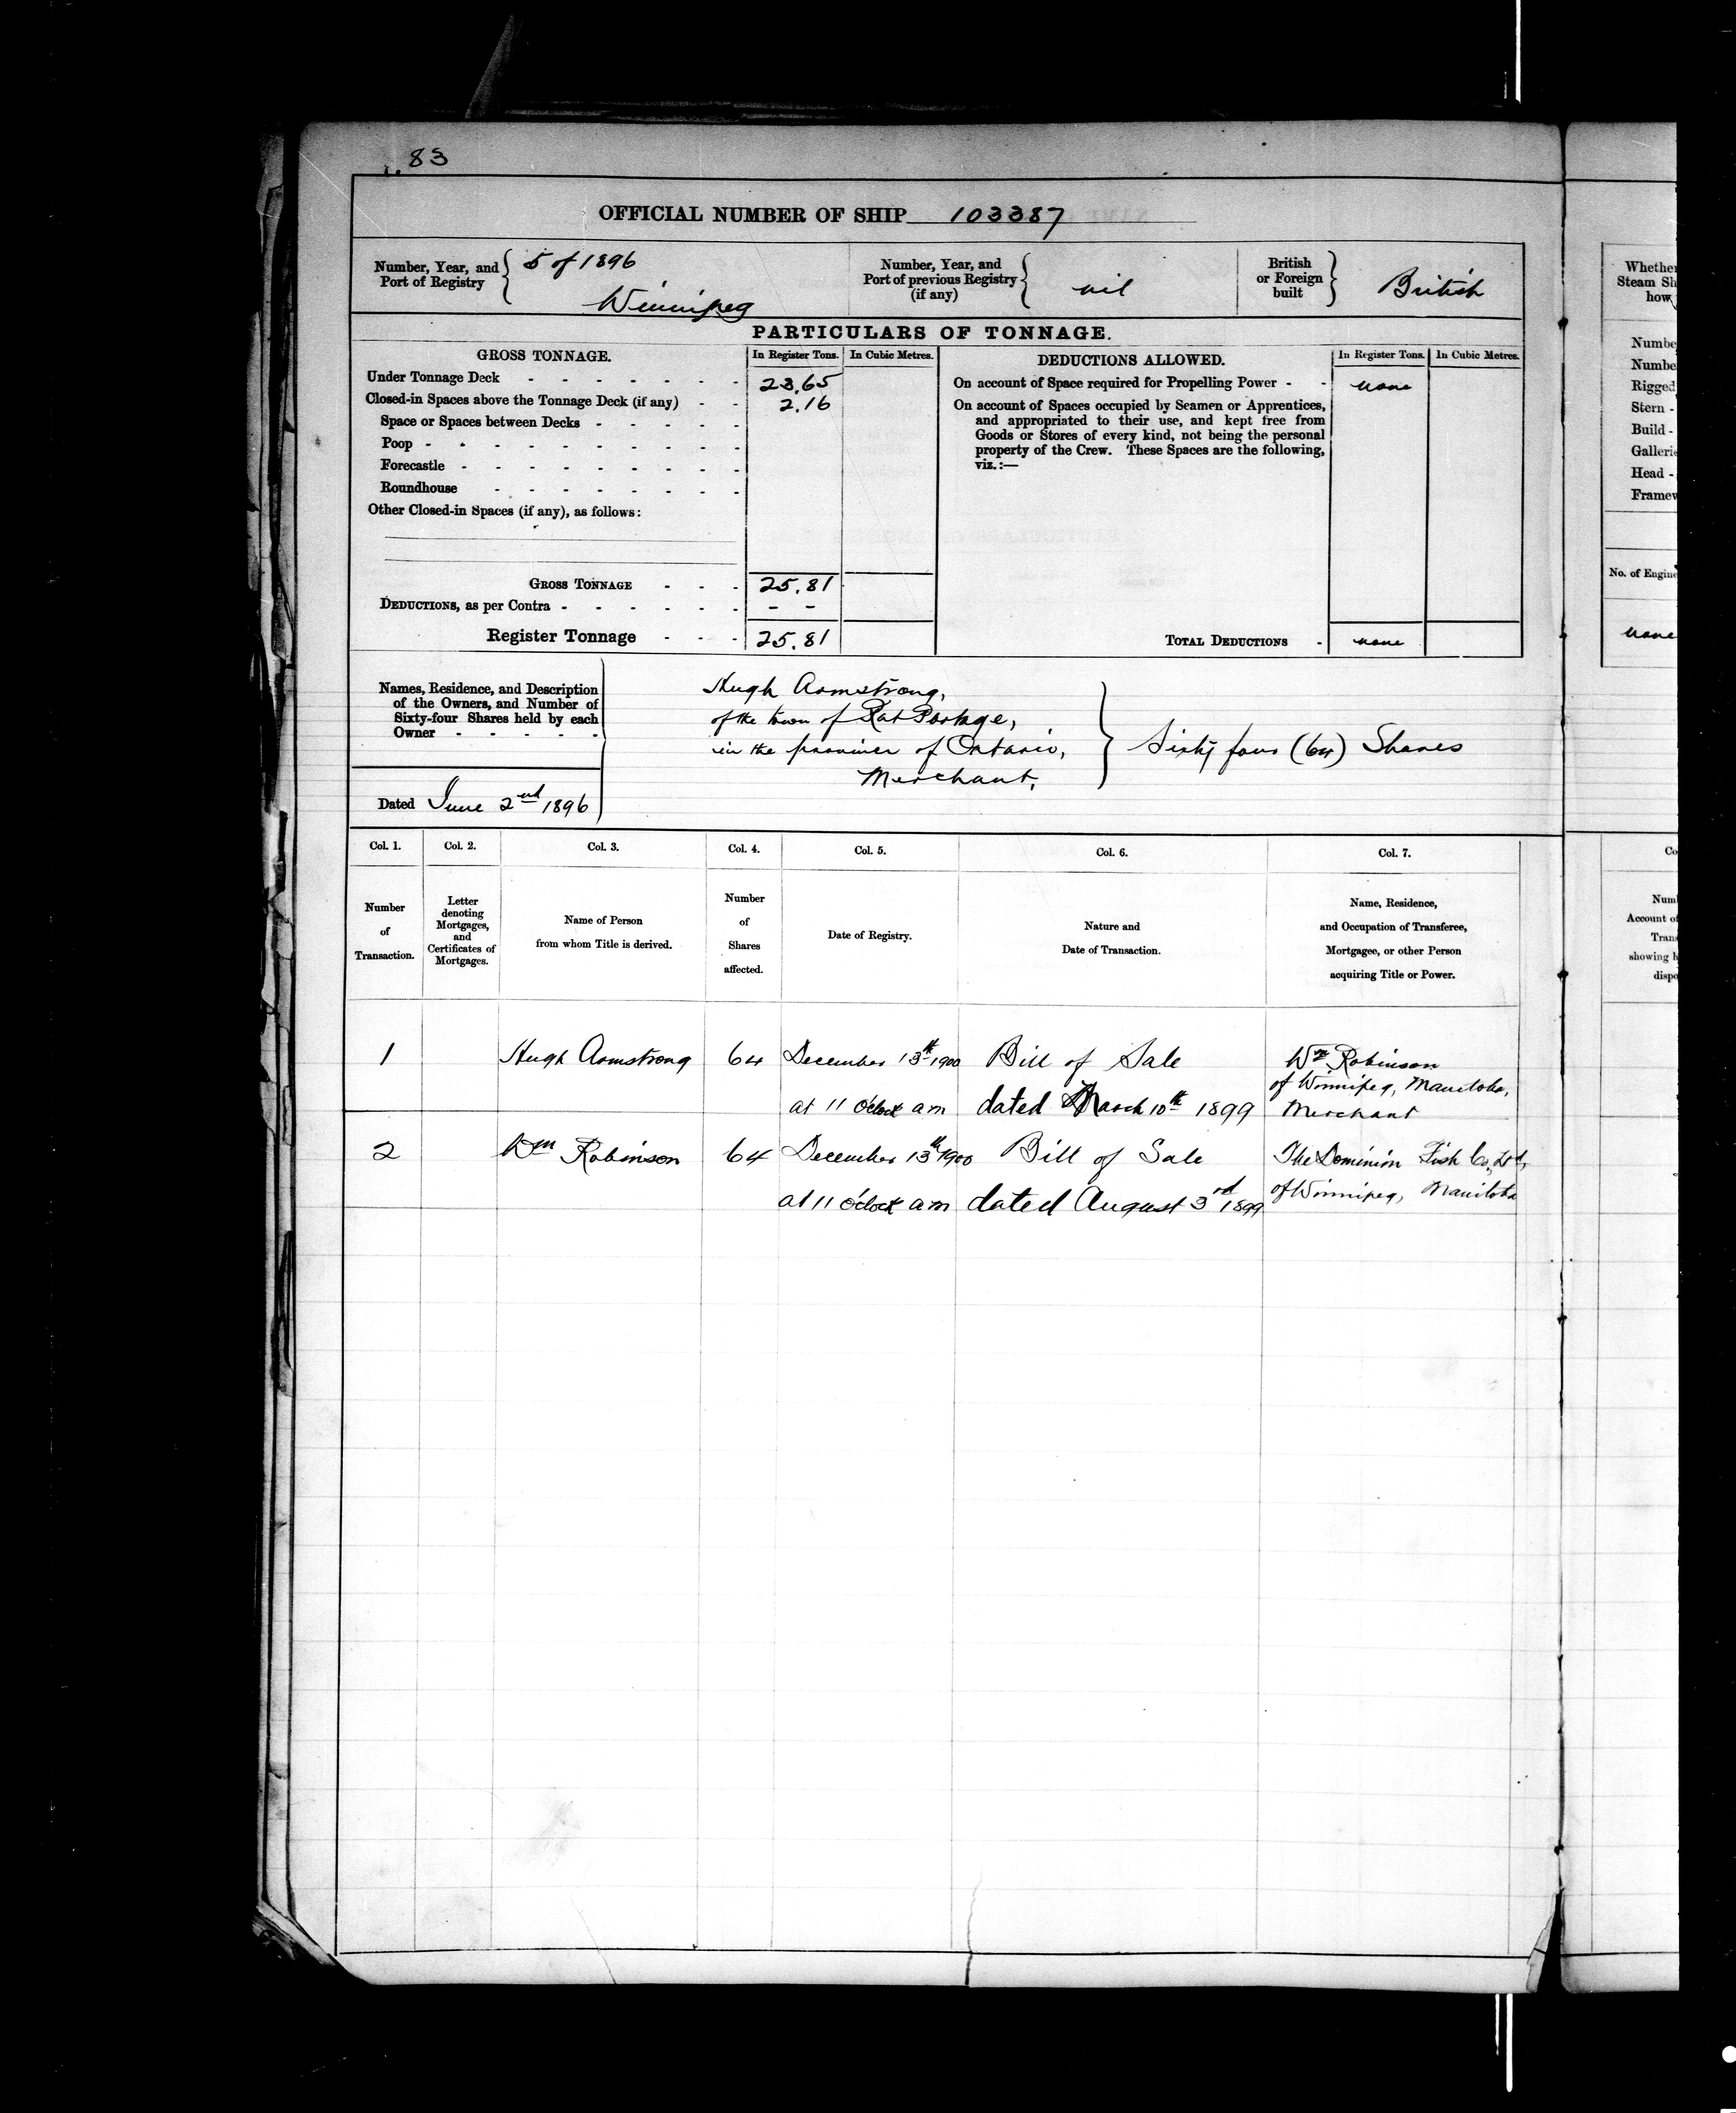 83
OFFICIAL NUMBER OF SHIP 103387
Number, Year, and Port of Registry { 5 of 1896 Winnipeg
Number, Year, and Port of previous Registry (if any) { nil
British or Foreign built } British
PARTICULARS OF TONNAGE.
GROSS TONNAGE. In Register Tons. In Cubic Metres. DEDUCTIONS ALLOWED. In Register Tons. In Cubic Metres.
Under Tonnage Deck - - - - - - - 23.65
Closed-in Spaces above the Tonnage Deck (if any) - - 2.16
Space or Spaces between Decks - - - - -
Poop - - - - - - - - -
Forecastle - - - - - - - -
Roundhouse - - - - - - -
Other Closed-in Spaces (if any), as follows:
GROSS TONNAGE - - - 25.81
DEDUCTIONS, as per Contra - - - - - - - -
Register Tonnage - - - 25.81
On account of Space required for Propelling Power - - none
On account of Spaces occupied by Seamen or Apprentices,
and appropriated to their use, and kept free from
Goods or Stores of every kind, not being the personal
property of the Crew. These Spaces are the following,
viz.:—
TOTAL DEDUCTIONS - none
Names, Residence, and Description
of the Owners, and Number of
Sixty-four Shares held by each
Owner - - - - -
Dated June 2nd 1896
Hugh Armstrong,
of the town of Rat Portage,
in the province of Ontario,
Merchant,
} Sixty four (64) Shares
Col. 1. Col. 2. Col. 3. Col. 4. Col. 5. Col. 6. Col. 7.
Number
of
Transaction.
Letter
denoting
Mortgages,
and
Certificates of
Mortgages.
Name of Person
from whom Title is derived.
Number
of
Shares
affected.
Date of Registry.
Nature and
Date of Transaction.
Name, Residence,
and Occupation of Transferee,
Mortgagee, or other Person
acquiring Title or Power.
1 Hugh Armstrong 64 December 13th 1900 Bill of Sale Wm Robinson
of Winnipeg, Manitoba,
at 11 o'clock am dated March 10th 1899 Merchant
2 Wm Robinson 64 December 13th 1900 Bill of Sale The Dominion Fish Co., Ltd,
at 11 o'clock am dated August 3rd 1899 of Winnipeg, Manitoba
Whether
Steam Sh
how
Numbe
Numbe
Rigged
Stern -
Build -
Galleri
Head -
Framew
No. of Engine
none
Co
Num
Account of
Trans
showing h
dispo